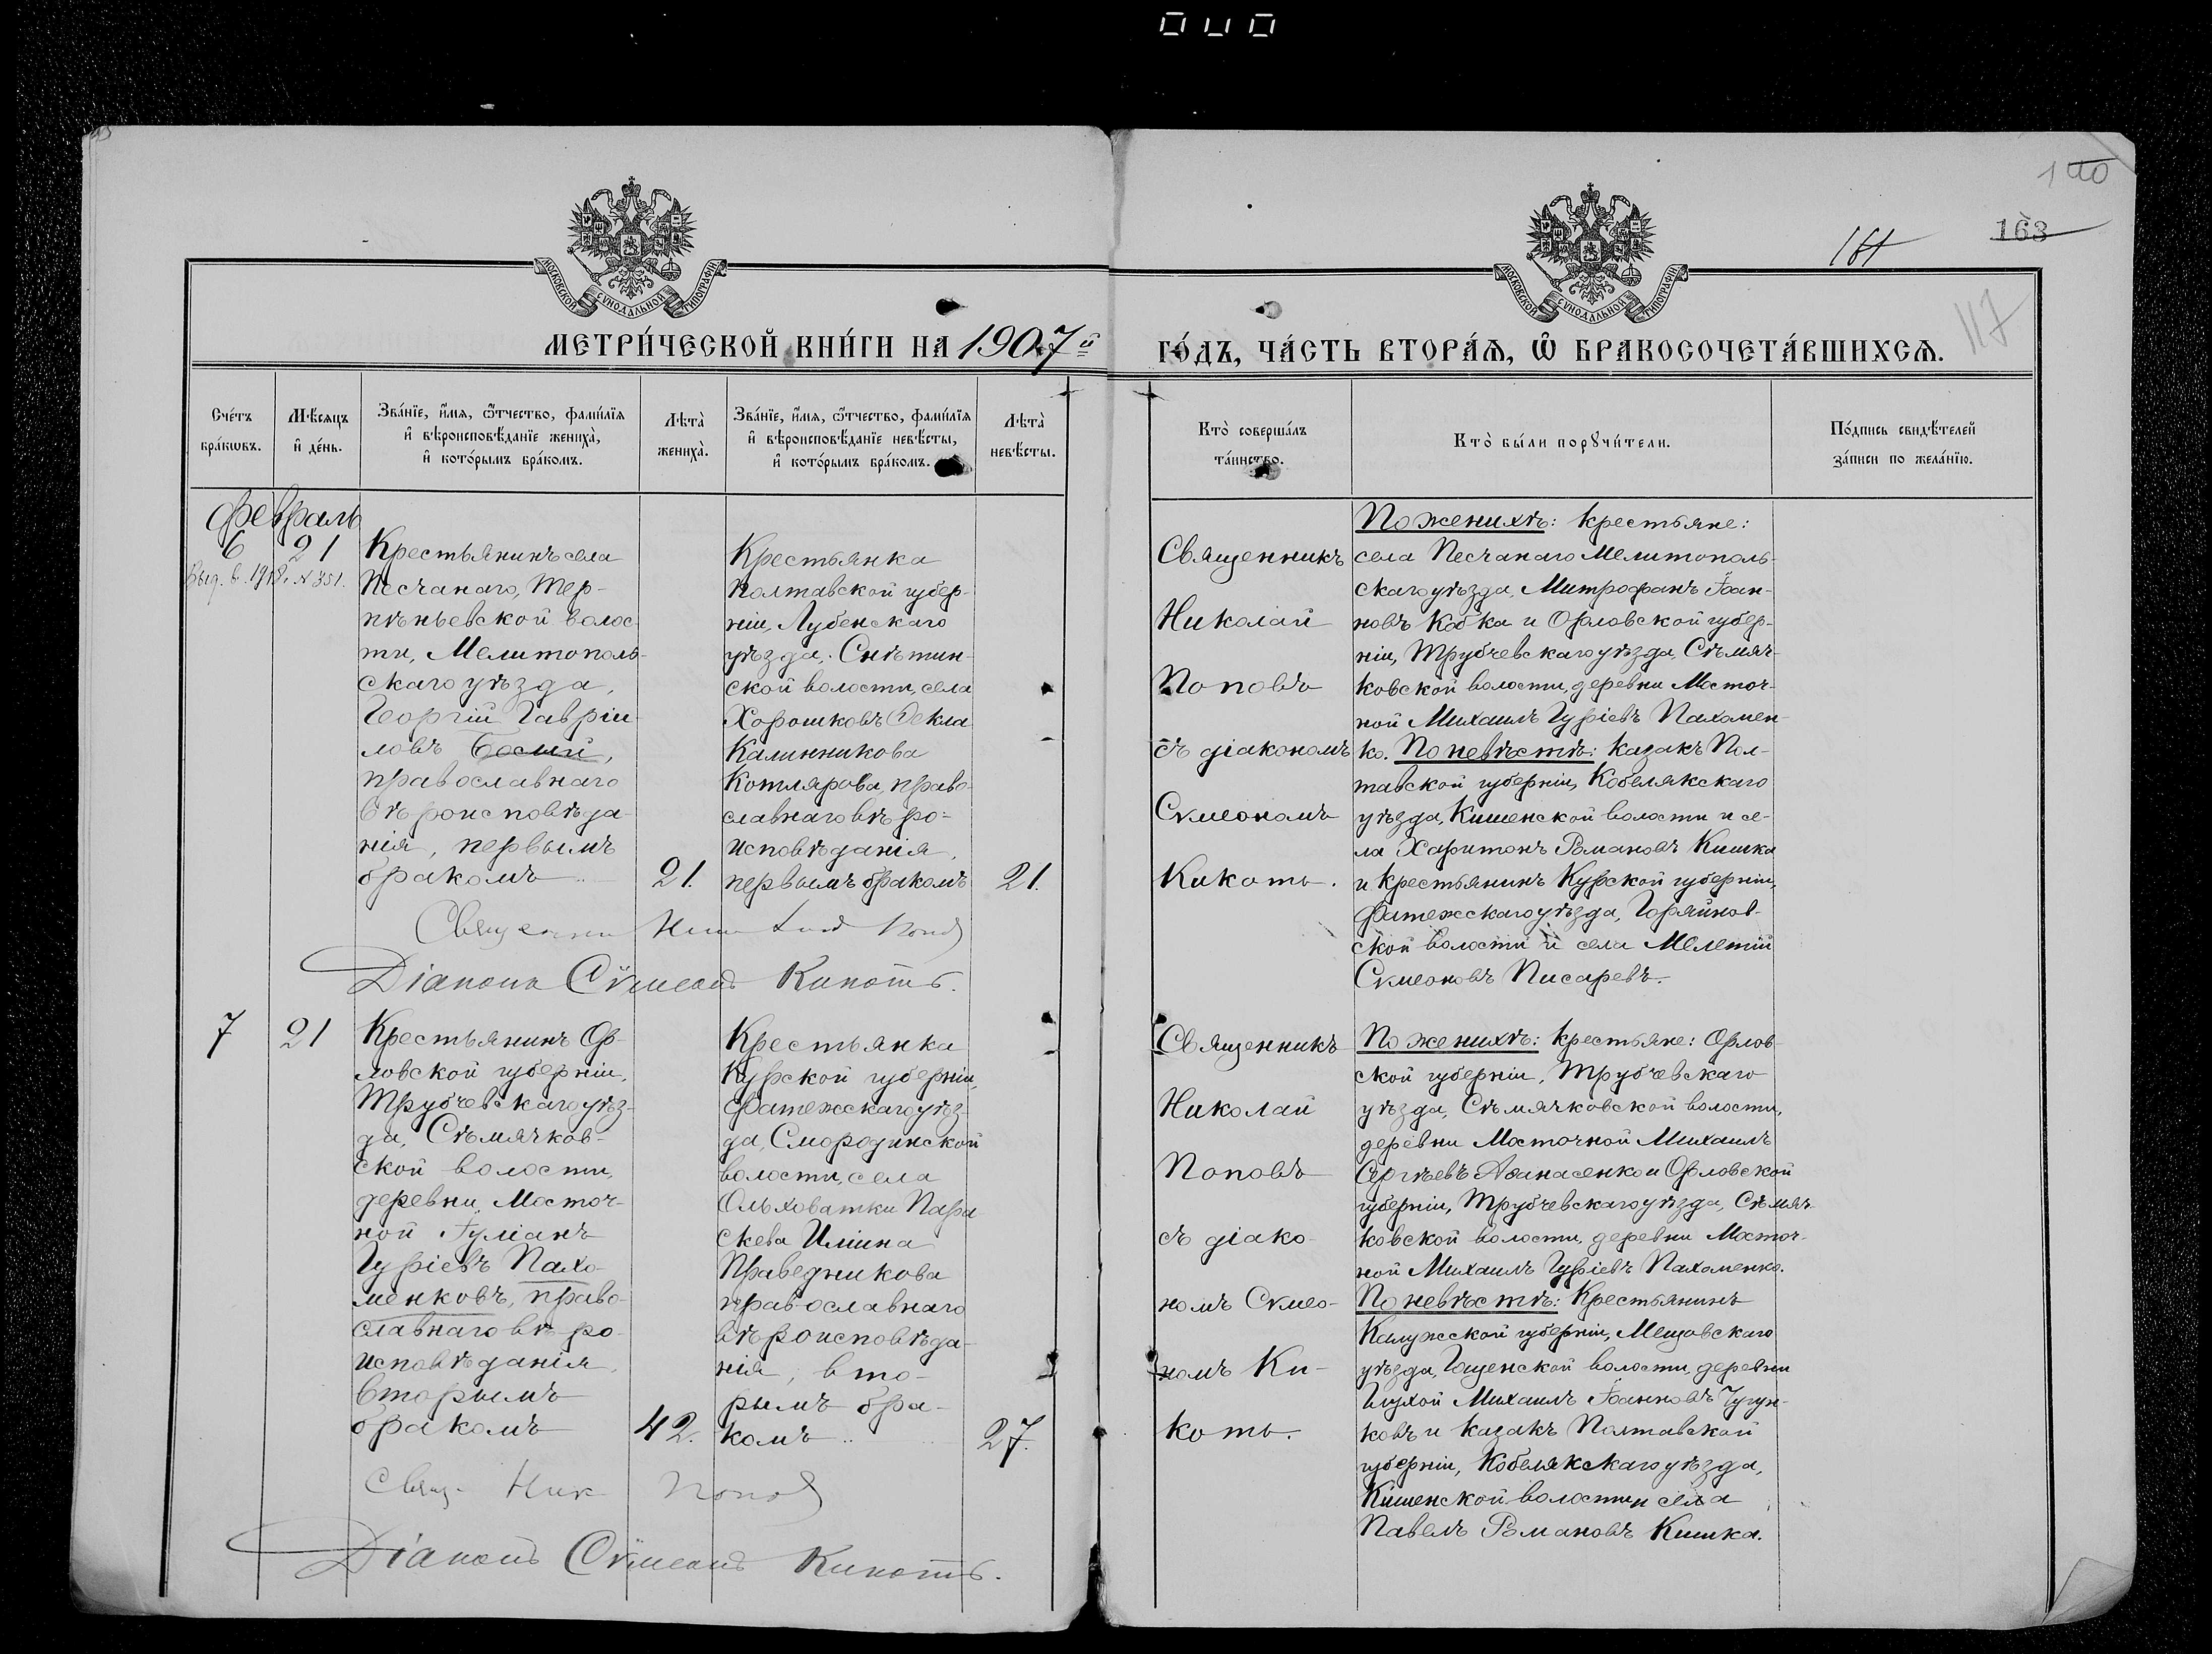 100
163
161
117
МОСКОВСКОЙ СУНОДАЛЬНОЙ ТИПОГРАФІИ
МОСКОВСКОЙ СУНОДАЛЬНОЙ ТИПОГРАФІИ
МЕТРИ́ЧЕСКОЙ КНИ́ГИ НА 1907й
ГО́ДЪ, ЧА́СТЬ ВТОРА́Ѧ, Ѡ҆ БРАКОСОЧЕТА́ВШИХСѦ.
Сче́тъ
бра́кωвъ.
Мѣ́сѧцъ
и҆ де́нь.
Зва́нїе, и҆́мѧ, ѻ҆́тчество, фами́лїѧ
и҆ вѣроисповѣ́данїе жениха̀,
и҆ кото́рымъ бра́комъ.
Лѣта̀
жениха̀.
Зва́нїе, и҆́мѧ, ѻ҆́тчество, фами́лїѧ
и҆ вѣроисповѣ́данїе невѣ́сты,
и҆ кото́рымъ бра́комъ.
Лѣта̀
невѣ́сты.
Кто̀ соверша́лъ
та́инство.
Кто̀ бы́ли порꙋчи́тели.
По́дпись свидѣ́телей
за́писи по жела́нїю.
Февраль
6
Выд. в. 1918г. N 351.
21
Крестьянинъ села
Песчанаго, Тер-
пѣньевской волос-
ти, Мелитополь-
скаго уѣзда,
Георгій Гавріи-
ловъ Босый,
православнаго
вѣроисповѣда-
нія, первымъ
бракомъ
21.
Крестьянка
Полтавской губер-
ніи, Лубенскаго
уѣзда, Снѣтин-
ской волости, села
Хорошковъ Ѳекла
Калинникова
Котлярова, право-
славнаго вѣро-
исповѣданія,
первымъ бракомъ
21.
Священникъ
Николай
Поповъ
съ діакономъ
Сѵмеономъ
Кикоть.
По женихѣ: крестьяне:
села Песчанаго Мелитополь-
скаго уѣзда, Митрофанъ Іоан-
новъ Кобка и Орловской губер-
ніи, Трубчевскаго уѣзда, Сѣмяч-
ковской волости, деревни Мосточ-
ной Михаилъ Гуріевъ Пахомен-
ко. По невѣстѣ: казакъ Пол-
тавской губерніи, Кобелякскаго
уѣзда, Кишенской волости и се-
ла Харитонъ Романовъ Кишка
и крестьянинъ Курской губерніи,
Фатежскаго уѣзда, Горяйнов-
ской волости и села Мелетій
Сѵмеоновъ Писаревъ.
Священникъ Николай Поповъ
Діаконъ Сѵмеонъ Кикоть.
7
21
Крестьянинъ Ор-
ловской губерніи,
Трубчевскаго уѣз-
да, Сѣмячков-
ской волости,
деревни Мосточ-
ной Іуліанъ
Гуріевъ Пахо-
менковъ, право-
славнаго вѣро-
исповѣданія,
вторымъ
бракомъ
42.
Крестьянка
Курской губерніи,
Фатежскаго уѣз-
да, Смородинской
волости, села
Ольховатки Пара-
скева Иліина
Праведникова
православнаго
вѣроисповѣда-
нія, вто-
рымъ бра-
комъ
27.
Священникъ
Николай
Поповъ
съ діако-
номъ Сѵмео-
номъ Ки-
коть.
По женихѣ: крестьяне: Орлов-
ской губерніи, Трубчевскаго
уѣзда, Сѣмячковской волости,
деревни Мосточной Михаилъ
Сергѣевъ Аѳанасенко и Орловской
губерніи, Трубчевскаго уѣзда, Сѣмяч-
ковской волости, деревни Мосточ-
ной Михаилъ Гуріевъ Пахоменко.
По невѣстѣ: Крестьянинъ
Калужской губерніи, Мещовскаго
уѣзда, Гощенской волости, деревни
Глухой Михаилъ Іоанновъ Чугун-
ковъ и казакъ Полтавской
губерніи, Кобелякскаго уѣзда,
Кишенской волости и села
Павелъ Романовъ Кишка.
Свящ. Ник Поповъ
Діаконъ Сѵмеонъ Кикоть.